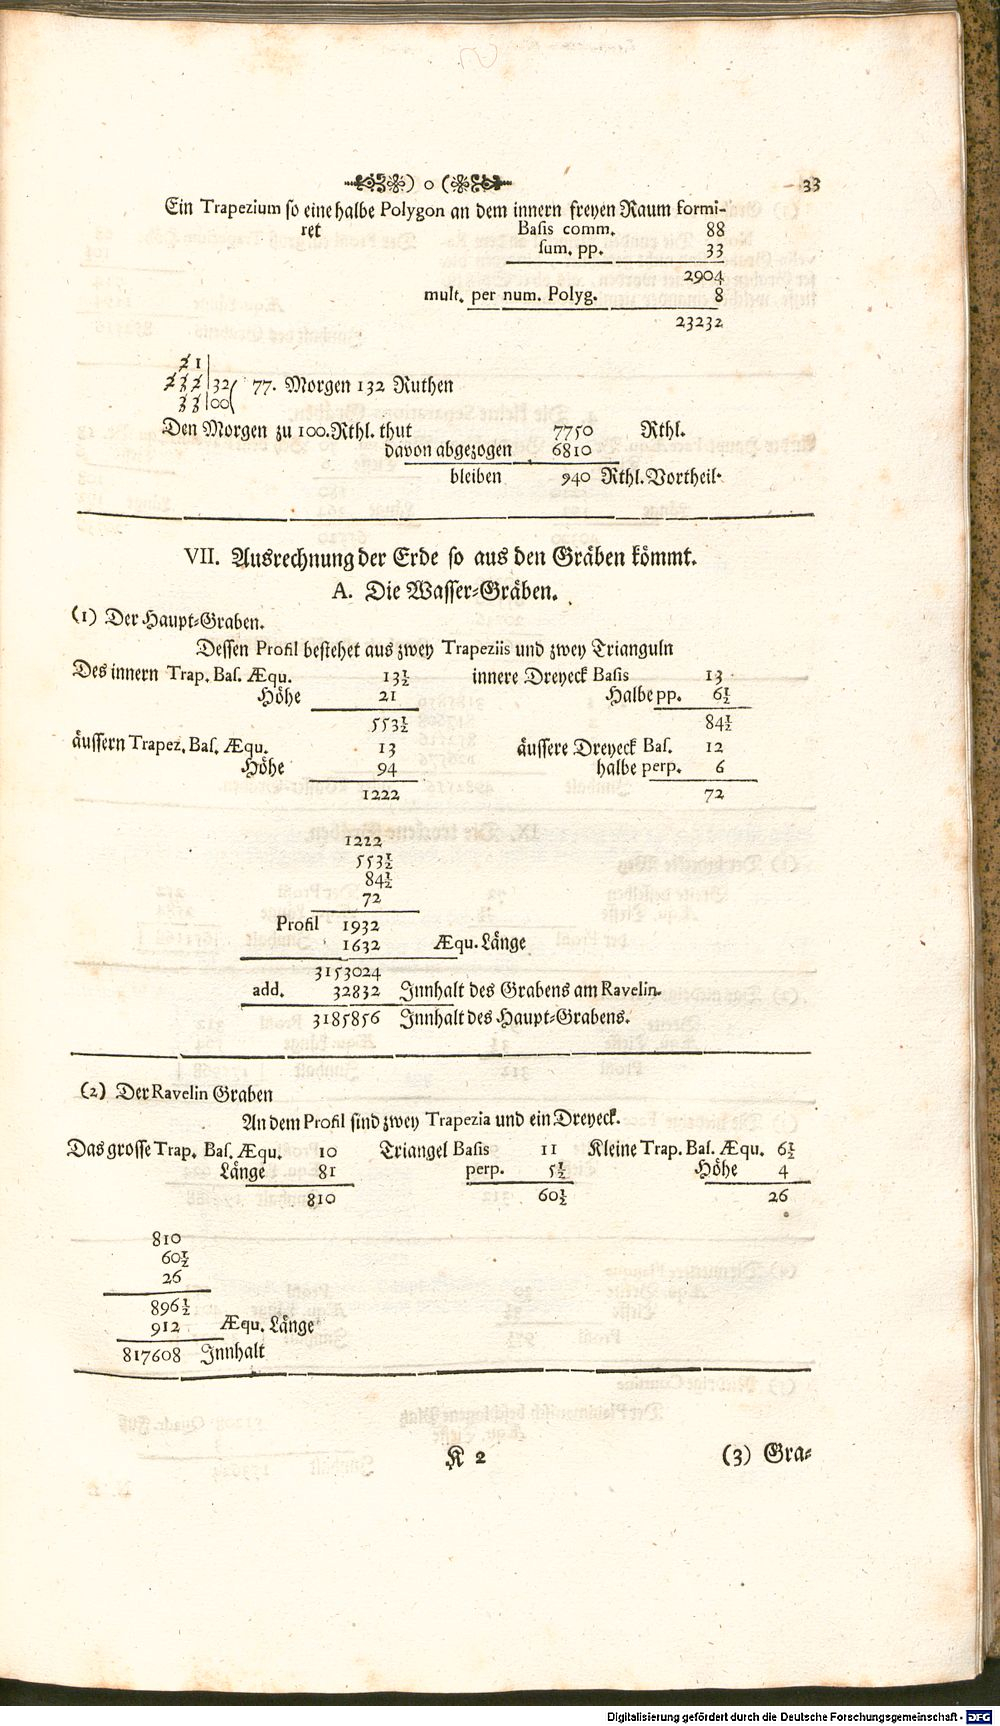 ) o ( 33
Ein Trapezium so eine halbe Polygon an dem innern freyen Raum formi-
ret Basis comm. 88
sum. pp. 33
2904
mult. per num. Polyg. 8
23232
21
232 | 32 ( 77. Morgen 132 Ruthen
33 | 00 (
Den Morgen zu 100. Rthl. thut 7750 Rthl.
davon abgezogen 6810
bleiben 940 Rthl. Vortheil.
VII. Ausrechnung der Erde so aus den Gräben kömmt.
A. Die Wasser-Gräben.
(1) Der Haupt-Graben.
Dessen Profil bestehet aus zwey Trapeziis und zwey Trianguln
Des innern Trap. Bas. Æqu. 13½ innere Dreyeck Basis 13
Höhe 21 Halbe pp. 6½
553½ 84½
äussern Trapez. Bas. Æqu. 13 äussere Dreyeck Bas. 12
Höhe 94 halbe perp. 6
1222 72
1222
553½
84½
72
Profil 1932
1632 Æqu. Länge
3153024
add. 32832 Innhalt des Grabens am Ravelin.
3185856 Innhalt des Haupt-Grabens.
(2) Der Ravelin Graben
An dem Profil sind zwey Trapezia und ein Dreyeck.
Das grosse Trap. Bas. Æqu. 10 Triangel Basis 11 Kleine Trap. Bas. Æqu. 6½
Länge 81 perp. 5½ Höhe 4
810 60½ 26
810
60½
26
896½
912 Æqu. Länge
817608 Innhalt
K 2 (3) Gra-
Digitalisierung gefördert durch die Deutsche Forschungsgemeinschaft - DFG